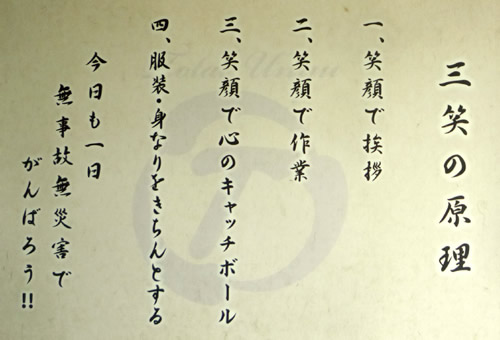 三笑の原理
一、笑顔で挨拶
二、笑顔で作業
三、笑顔で心のキャッチボール
四、服装・身なりをきちんとする
今日も一日
無事故無災害で
がんばろう!!